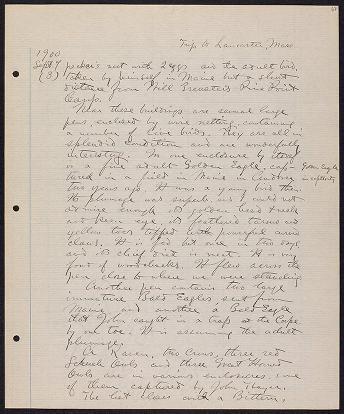 Trip to Lancaster, Mass.
1900
Sept. 7
(3)
pecker's nest with 2 eggs and the adult bird,
taken by himself in Maine but a short
distance from Will Brewster's Pine Point
Camp.
Near these buildings are several large
pens enclosed by wire netting, containing
a number of live birds. They are all in
splendid condition and are wonderfully
interesting. In one enclosure by itself
is a fine adult Golden Eagle, cap-
Golden Eagle
in captivity
tured in a field in Maine in
two years ago. It was a young bird then.
Its plumage was superb and I could not
admire enough its golden head & neck
and keen eye, its feathered tarsus and
yellow toes tipped with powerful armed
claws. It is fed but once in two days
and its chief diet is meat. It is very
fond of woodchucks. It flew across the
pen close to where we were standing.
Another pen contains two large
immature Bald Eagles sent from
Maine and another a Bald Eagle
that John caught in a trap at the Cape
by one toe. It is assuming the adult
plumage.
A Raven, two Crows, three red
Screech Owls and three Great Horned
Owls are in various enclosures, one
of them captured by John Thayer.
The list closes with a Bittern,